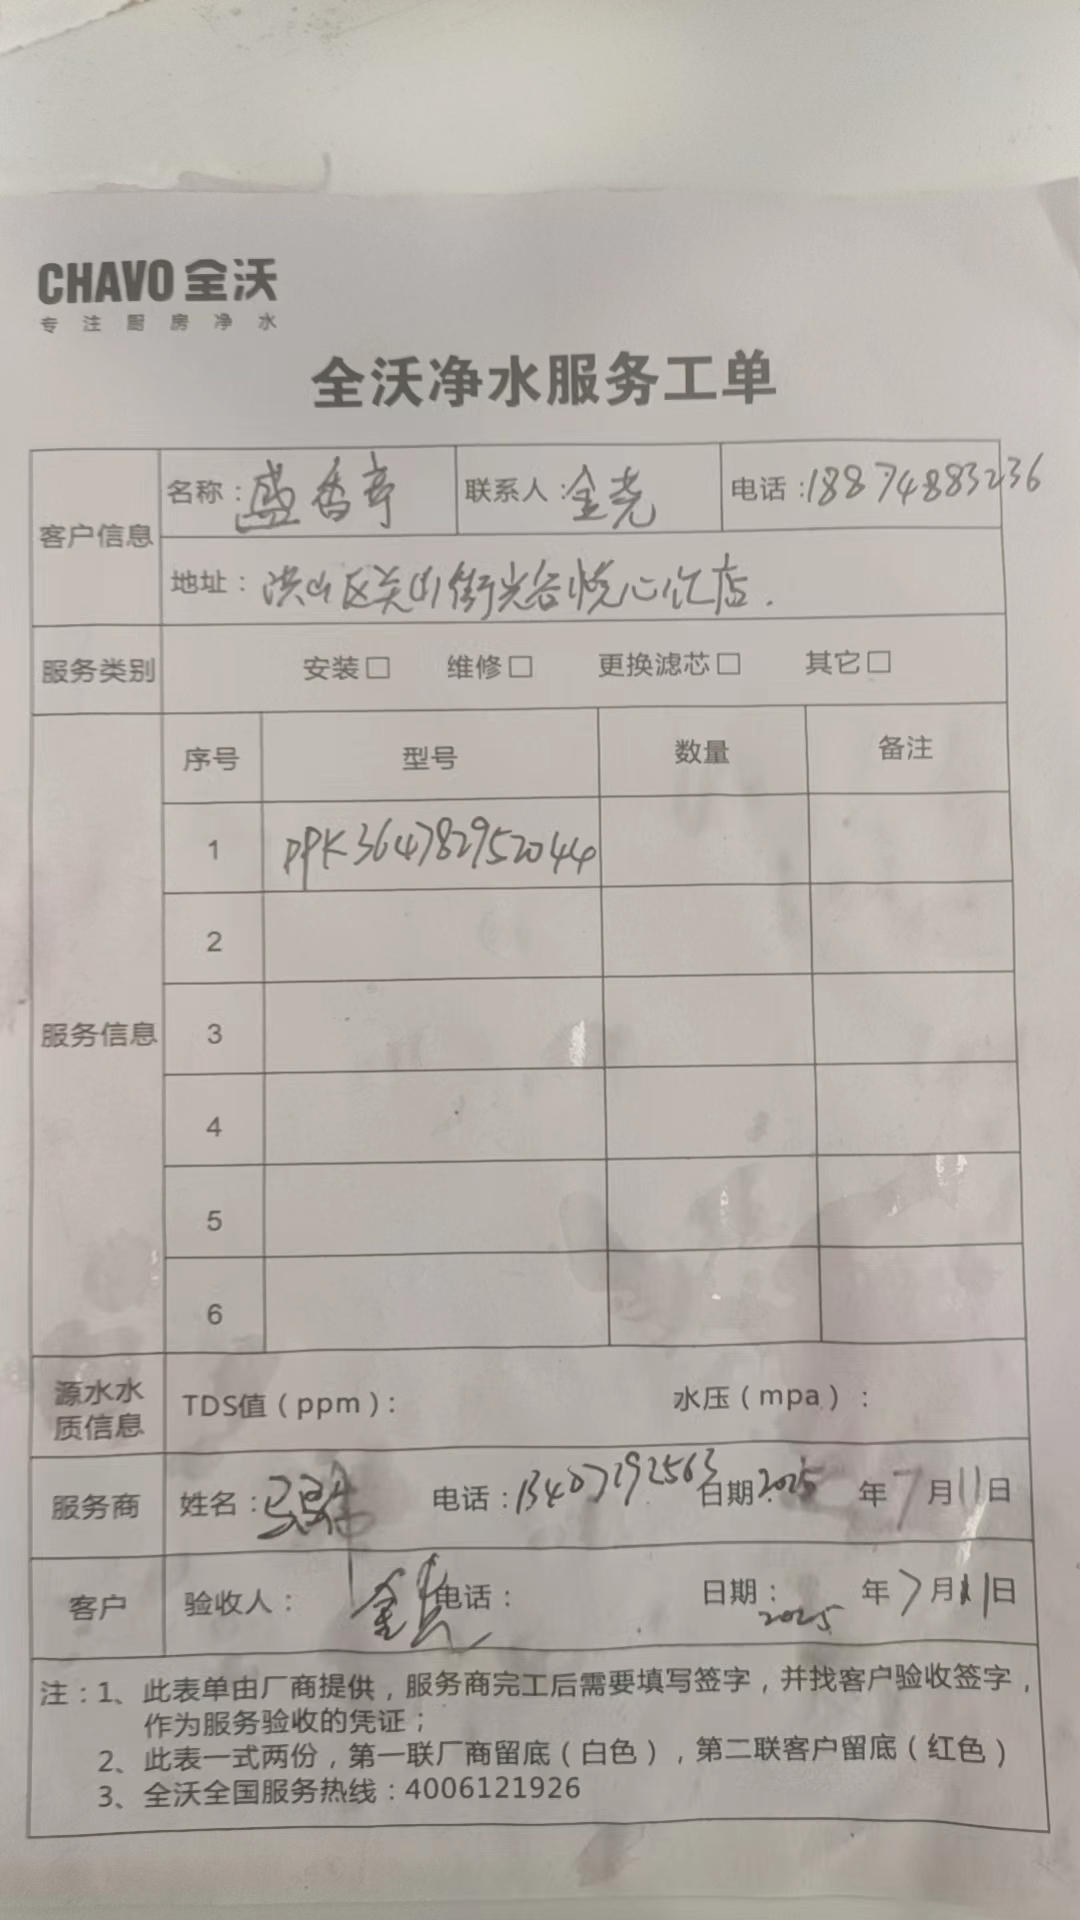 CHAVO 全沃
专注厨房净水
全沃净水服务工单
客户信息 名称：盛香亭 联系人：金尧 电话：18874883236
地址：洪山区关山街光谷悦心汇店.
服务类别 安装□ 维修□ 更换滤芯□ 其它□
服务信息 序号 型号 数量 备注
1 PPK364782952044
2
3
4
5
6
源水水质信息 TDS值（ppm）： 水压（mpa）：
服务商 姓名： 电话：13407192563 日期：2025年7月11日
客户 验收人：金尧 电话： 日期：2025年7月11日
注：1、此表单由厂商提供，服务商完工后需要填写签字，并找客户验收签字，
作为服务验收的凭证；
2、此表一式两份，第一联厂商留底（白色），第二联客户留底（红色）
3、全沃全国服务热线：4006121926